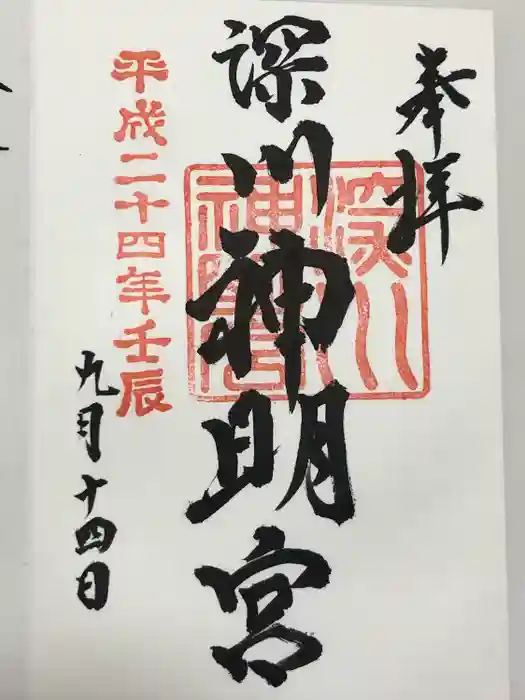 奉拝
深川神明宮
深川神明宮
平成二十四年壬辰
九月十四日